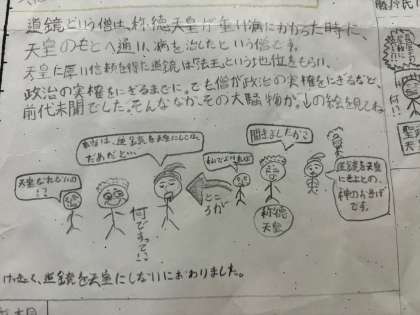 道鏡という僧は、称徳天皇が重い病にかかった時に、
天皇のもとへ通い、病を治したという僧です。
天皇に厚い信頼を得た道鏡は「法王」という地位をもらい、
政治の実権をにぎるまでに。でも僧が政治の実権をにぎるなど、
前代未聞でした。そんななか、その大騒物が。↓の絵を見てね
聞きましたか?
道鏡を天皇
にせよとの、
神のお告げ
です。
称徳
天皇
ところが
道鏡を天皇にしては、
だめだと…
何ですって!?
天皇になれないの
!?
けっきょく、道鏡を天皇にしないにおわりました。
何!?